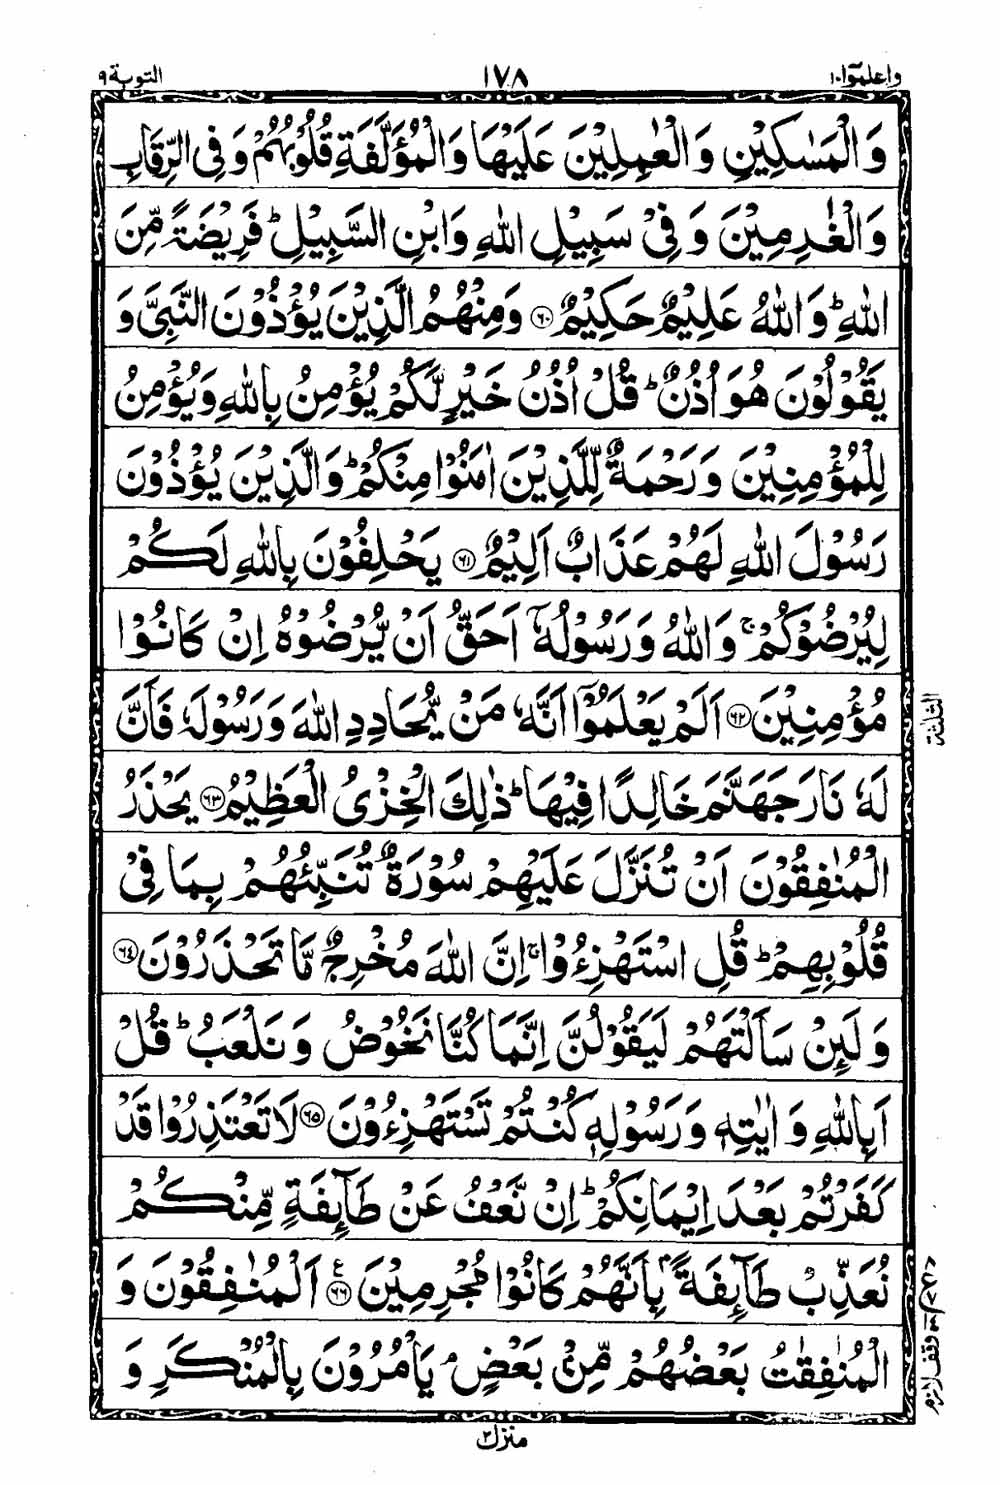 واعلموا ١٠ ١٧٨ التوبة ٩
وَالْمَسٰكِيْنِ وَالْعٰمِلِيْنَ عَلَيْهَا وَالْمُؤَلَّفَةِ قُلُوْبُهُمْ وَفِى الرِّقَابِ
وَالْغٰرِمِيْنَ وَفِىْ سَبِيْلِ اللّٰهِ وَابْنِ السَّبِيْلِ ؕ فَرِيْضَةً مِّنَ
اللّٰهِ ؕ وَاللّٰهُ عَلِيْمٌ حَكِيْمٌ ﴿٦٠﴾ وَمِنْهُمُ الَّذِيْنَ يُؤْذُوْنَ النَّبِىَّ وَ
يَقُوْلُوْنَ هُوَ اُذُنٌ ؕ قُلْ اُذُنُ خَيْرٍ لَّكُمْ يُؤْمِنُ بِاللّٰهِ وَيُؤْمِنُ
لِلْمُؤْمِنِيْنَ وَرَحْمَةٌ لِّلَّذِيْنَ اٰمَنُوْا مِنْكُمْ ؕ وَالَّذِيْنَ يُؤْذُوْنَ
رَسُوْلَ اللّٰهِ لَهُمْ عَذَابٌ اَلِيْمٌ ﴿٦١﴾ يَحْلِفُوْنَ بِاللّٰهِ لَكُمْ
لِيُرْضُوْكُمْ ۚ وَاللّٰهُ وَرَسُوْلُهٗۤ اَحَقُّ اَنْ يُّرْضُوْهُ اِنْ كَانُوْا
مُؤْمِنِيْنَ ﴿٦٢﴾ اَلَمْ يَعْلَمُوْۤا اَنَّهٗ مَنْ يُّحَادِدِ اللّٰهَ وَرَسُوْلَهٗ فَاَنَّ
لَهٗ نَارَ جَهَنَّمَ خَالِدًا فِيْهَا ؕ ذٰلِكَ الْخِزْىُ الْعَظِيْمُ ﴿٦٣﴾ يَحْذَرُ
الْمُنٰفِقُوْنَ اَنْ تُنَزَّلَ عَلَيْهِمْ سُوْرَةٌ تُنَبِّئُهُمْ بِمَا فِىْ
قُلُوْبِهِمْ ؕ قُلِ اسْتَهْزِءُوْا ۚ اِنَّ اللّٰهَ مُخْرِجٌ مَّا تَحْذَرُوْنَ ﴿٦٤﴾
وَلَئِنْ سَاَلْتَهُمْ لَيَقُوْلُنَّ اِنَّمَا كُنَّا نَخُوْضُ وَنَلْعَبُ ؕ قُلْ
اَبِاللّٰهِ وَاٰيٰتِهٖ وَرَسُوْلِهٖ كُنْتُمْ تَسْتَهْزِءُوْنَ ﴿٦٥﴾ لَا تَعْتَذِرُوْا قَدْ
كَفَرْتُمْ بَعْدَ اِيْمَانِكُمْ ؕ اِنْ نَّعْفُ عَنْ طَآئِفَةٍ مِّنْكُمْ
نُعَذِّبْ طَآئِفَةًۢ بِاَنَّهُمْ كَانُوْا مُجْرِمِيْنَ ﴿٦٦﴾ ع اَلْمُنٰفِقُوْنَ وَ
الْمُنٰفِقٰتُ بَعْضُهُمْ مِّنْۢ بَعْضٍ ۘ يَاْمُرُوْنَ بِالْمُنْكَرِ وَ
الثلثة
وقف لازم
منزل ٢